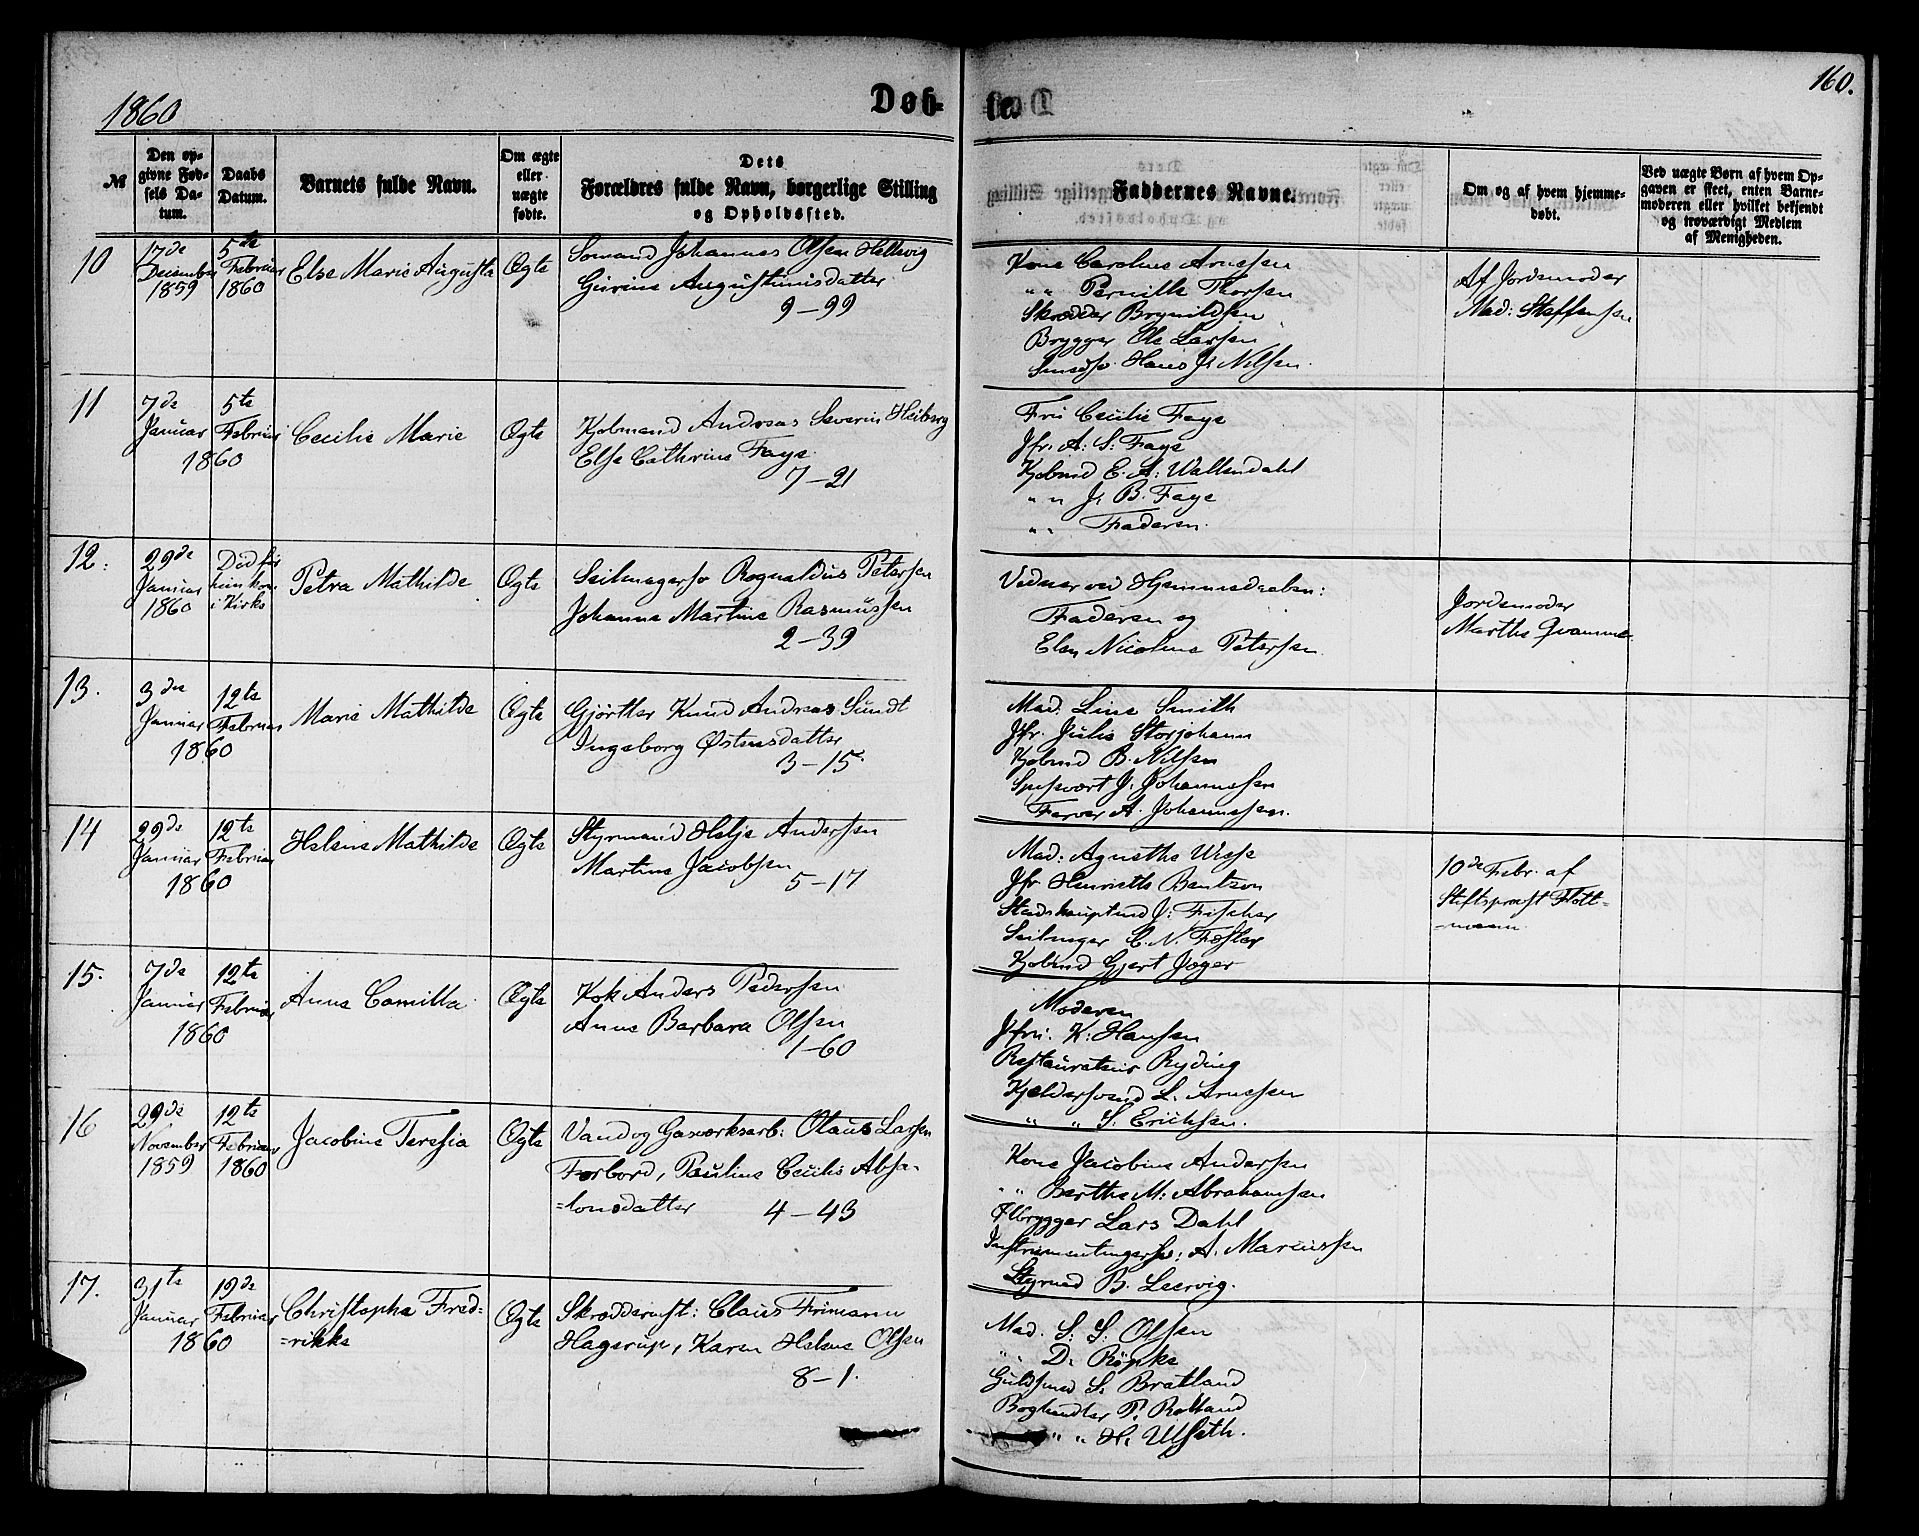 1860
Døb-
te.
160.
№
Den op-
givne Fød-
sels Da-
tum.
Daabs
Datum.
Barnets fulde Navn.
Om ægte
eller
uægte
fødte.
Dets
Forældres fulde Navn, borgerlige Stilling
og Opholdssted.
Faddernes Navne.
Om og af hvem hjemme-
døbt.
Ved uægte Børn af hvem Op-
gaven er skeet, enten Barne-
moderen eller hvilket bekjendt
og troværdigt Medlem
af Menigheden.
10
17de
December
1859
5te
Februar
1860
Else Marie Augusta
Ægte
Sømand Johannes Olsen Hellevig
Gurine Augustinusdatter
9-99
Kone Caroline Arnesen
" " Pernille Thorsen
Skrædder Brynildsen
Brygger Ole Larsen
Smedsv. Hans J. Nilsen.
Af Jordemoder
Mad: Steffensen
11
7de
Januar
1860
5te
Februar
Cecilie Marie
Ægte
Kjøbmand Andreas Severin Heiberg
Else Cathrine Faye.
7-21
Fru Cecilie Faye
Jfr. A. S. Faye
Kjøbmd E. A. Wallendahl
" " J. B. Faye
" " Faderen.
12.
29de
Januar
1860
Død før
hun kom
i Kirke
Petra Mathilde
Ægte
Seilmagersv Rognaldus Petersen
Johanne Martine Rasmussen
2-39
Vidner ved Hjemmedaaben:
Faderen og
Elen Nicoline Petersen.
Jordemoder
Marthe Qvamme.
13.
3die
Januar
1860
12te
Februar
Marie Mathilde
Ægte
Gjørtler Knud Andreas Sundt
Ingeborg Østensdatter
3-15.
Mad. Line Smith
Jfr. Julie Storjohann
Kjøbmd B. Nilsen
Spisevært J. Johannesen
Farver A. Johannesen.
14
29de
Januar
1860
12te
Februar
Helene Mathilde
Ægte
Styrmand Helje Andersen
Martine Jacobsen
5-17
Mad: Agnethe Wiese
Jfr Henriette Bentzon
Stadshauptmd J. Fischer
Seilmager C. N. Fæster
Kjøbmd Gjert Jæger
10de Febr. af
Stiftsprost Flott-
=mann.
15.
7de
Januar
1860
12te
Februar
Anne Camilla
Ægte
Kok Anders Pedersen
Anne Barbara Olsen
1-60
Moderen
Jfru. K. Hansen
Restaurateur Ryding
Kjeldersvend L. Arnesen
" " S. Erichsen.
16
29de
November
1859
12te
Februar
1860
Jacobine Teresia
Ægte
Vand og Gasværksarb: Olaus Larsen
Forbord, Pauline Cecilie Absa-
=lonsdatter
4-43
Kone Jacobine Andersen
" " Berthe M. Abrahamsen
Ølbrygger Lars Dahl
Instrumentmagersv: A. Marcussen
Styrmd B. Leervig.
17.
31te
Januar
1860
19de
Februar
Christopha Fred-
=rikke
Ægte
Skræddermst: Claus Frimann
Hagerup, Karen Helene Olsen
8-1.
Mad. S. S. Olsen
" " D. Röpke
Guldsmed S. Bratland
Boghandler P. Rolland
" " H. Ulseth.